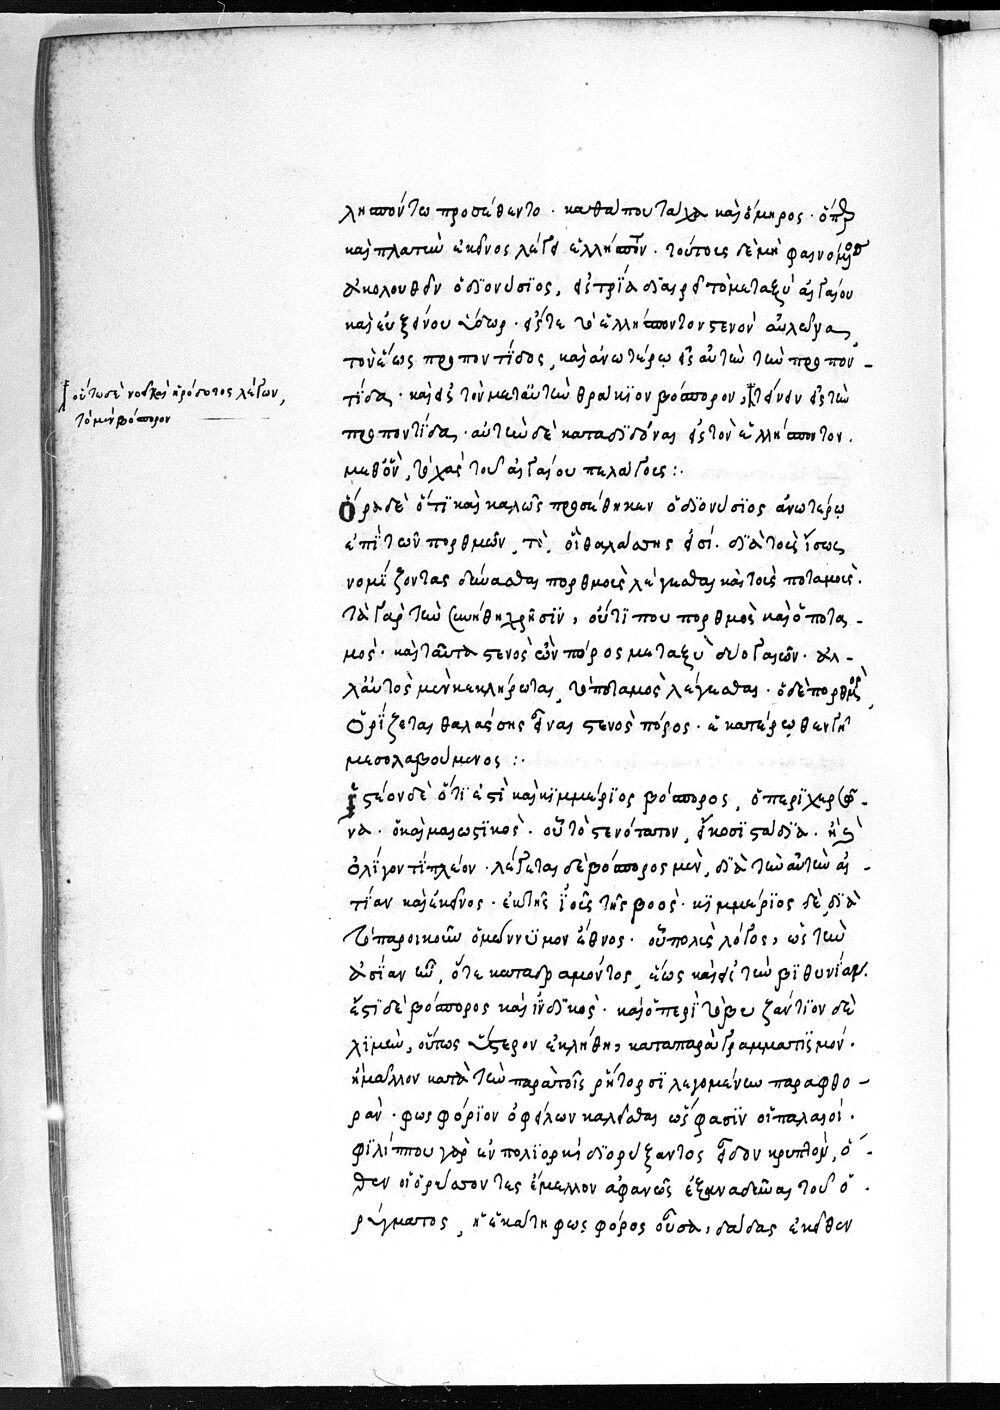 λησπόντω προσέθεντο· καθά που ταῦτα καὶ ὅμηρος· ὅπερ
καὶ πλατὺν ἐκεῖνος λέγει ἑλλήσποντον· τούτοις δὲ μὴ φαινόμενος
ἀκολουθεῖν ὁ διονύσιος, εἰς τρία διαιρεῖ τὸ μεταξὺ αἰγαίου
καὶ εὐξείνου ὕδωρ· εἴς τε τὸ ἑλλήσποντον στενὸν
τὸν ἕως προποντίδος, καὶ ἀνωτέρω εἰς αὐτὴν τὴν προπον-
τίδα· καὶ εἰς τὸν μετ' αὐτὴν θρακιον βόσπορον, εἰς τὴν
οὕτως ἐνόει καὶ ἡρόδοτος λέγων,
τὸ μὲν βόσπορον
προποντίδα· αὐτὴν δὲ καταδιδόναι εἰς τὸν ἑλλήσποντον.
μεθ' ὃν, τὸ χάος τοῦ αἰγαίου πελάγους:·
Ὅρα δὲ ὅτι καὶ καλῶς προσέθηκεν ὁ διονύσιος ἀνωτέρω
ἐπὶ τῶν πορθμῶν, τὸ, οἱ θαλάσσης εἰσί· διὰ τοὺς ἴσως
νομίζοντας δύνασθαι πορθμοὺς λέγεσθαι καὶ τοὺς ποταμούς.
τὰ γὰρ τὴν συνήθη χρῆσιν, οὔτι που πορθμὸς καὶ ὁ ποτα-
μός· καὶ ταῦτα στενὸς ὢν πόρος μεταξὺ δύο γαιῶν· ἀλ-
λ' αὐτὸς μὲν κεκλήρωται, τὸ ποταμὸς λέγεσθαι· ὁ δὲ πορθμὸς,
ὁρίζεται θαλάσσης εἶναι στενὸς πόρος· ἑκατέρωθεν γῆ
μεσολαβούμενος:·
ἰστέον δὲ ὅτι ἐστὶ καὶ κιμμέριος βόσπορος, ὁ περὶ χερσῶ-
να· ὁ καὶ μαιωτικός· οὗ τὸ στενότατον, εἴκοσι στάδια· ἢ
ὀλίγον τι πλέον· λέγεται δὲ βόσπορος μὲν, διὰ τὴν αὐτὴν αἰ-
τίαν καὶ ἐκεῖνος· ἐκ τῆς ἰοῦς τῆς βοός· κιμμέριος δὲ, διὰ
τὸ παροικοῦν ὁμώνυμον ἔθνος· οὗ πολὺς λόγος, ὡς τὴν
ἀσίαν, ὅτε καταδραμόντος, ἕως καὶ εἰς τὴν βιθυνίαν.
ἔστι δὲ βόσπορος καὶ ἰνδικός· καὶ ὁ περὶ τὸ βυζάντιον δὲ
λιμὴν, οὕτως ὕστερον ἐκλήθη, κατὰ παραγραμματισμόν.
ἢ μᾶλλον κατὰ τὴν παρὰ τοῖς ῥήτορσι λεγομένην παραφθο-
ράν· φωσφόριον ὀφείλων καλεῖσθαι ὥς φασιν οἱ παλαιοί.
φιλίππου γὰρ ἐν πολιορκίᾳ διορύξαντος εἴσοδον κρυπτὴν, ὅ-
θεν οἱ ὀρύσσοντες ἔμελλον ἀφανῶς ἐξαναδῦναι τοῦ ὀ-
ρύγματος, ἡ ἑκάτη φωσφόρος οὖσα, δᾷδας